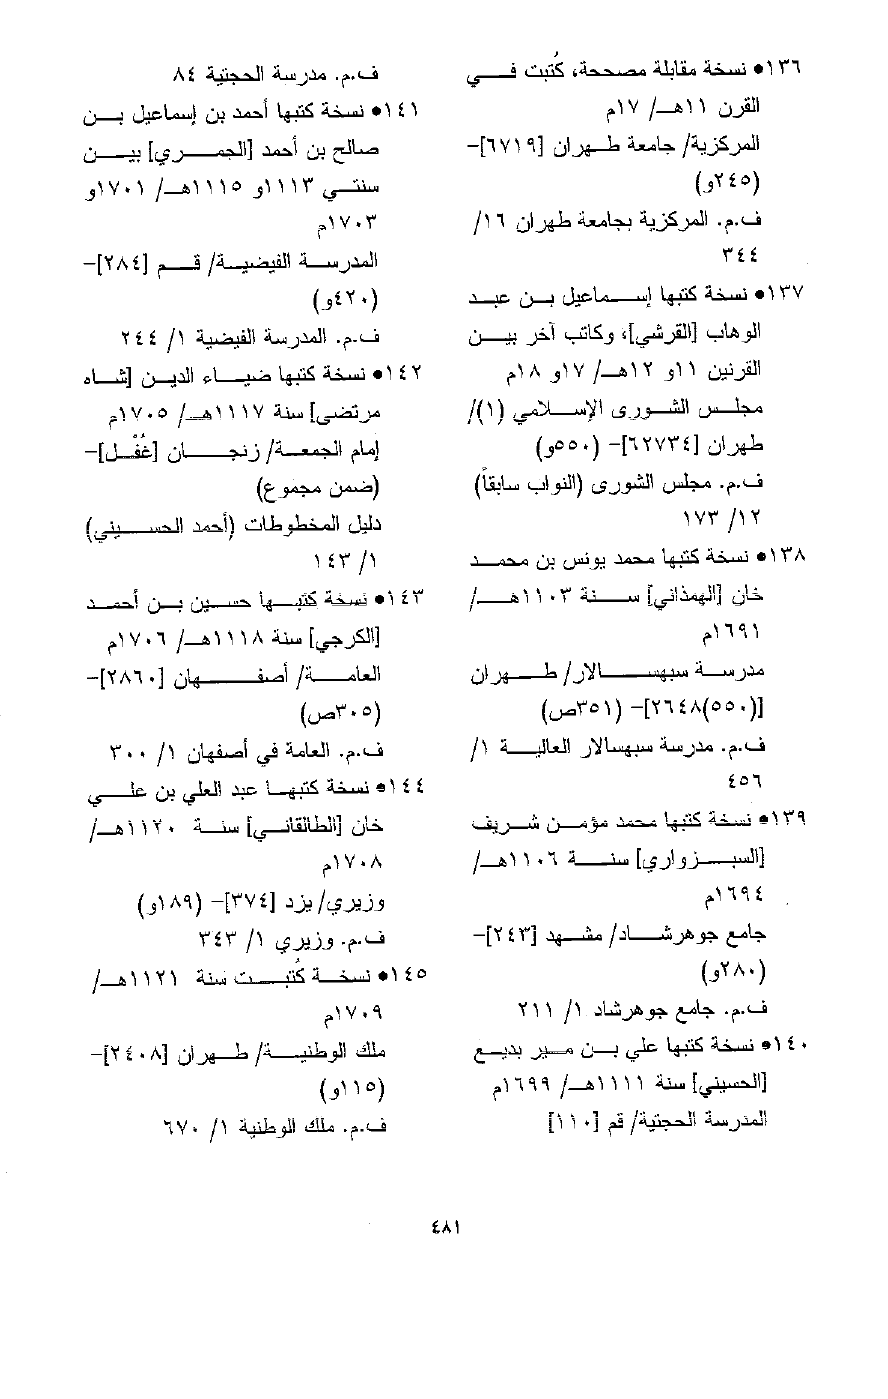 ١٣٦• نسخة مقابلة مصححة، كُتبت في
القرن ١١هـ/ ١٧م
المركزية/ جامعة طهران [٦٧١٩]-
(٢٤٥و)
ف.م. المركزية بجامعة طهران ١٦/
٣٤٤
١٣٧• نسخة كتبها إسماعيل بن عبد
الوهاب [القرشي]، وكاتب آخر بين
القرنين ١١و ١٢هـ/ ١٧و ١٨م
مجلس الشورى الإسلامي (١)/
طهران [٦٢٧٣٤]- (٥٥٠و)
ف.م. مجلس الشورى (النواب سابقاً)
١٢/ ١٧٣
١٣٨• نسخة كتبها محمد يونس بن محمد
خان [الهمذاني] سنة ١١٠٣هـ/
١٦٩١م
مدرسة سبهسالار/ طهران
[(٥٥٠)٢٦٤٨]- (٣٥١ص)
ف.م. مدرسة سبهسالار العالية ١/
٤٥٦
١٣٩• نسخة كتبها محمد مؤمن شريف
[السبزواري] سنة ١١٠٦هـ/
١٦٩٤م
جامع جوهرشاد/ مشهد [٢٤٣]-
(٢٨٠و)
ف.م. جامع جوهرشاد ١/ ٢١١
١٤٠• نسخة كتبها علي بن مير بديع
[الحسيني] سنة ١١١١هـ/ ١٦٩٩م
المدرسة الحجتية/ قم [١١٠]
ف.م. مدرسة الحجتية ٨٤
١٤١• نسخة كتبها أحمد بن إسماعيل بن
صالح بن أحمد [الجمري] بين
سنتي ١١١٣و ١١١٥هـ/ ١٧٠١و
١٧٠٣م
المدرسة الفيضية/ قم [٢٨٤]-
(٤٢٠و)
ف.م. المدرسة الفيضية ١/ ٢٤٤
١٤٢• نسخة كتبها ضياء الدين [شاه
مرتضى] سنة ١١١٧هـ/ ١٧٠٥م
إمام الجمعة/ زنجان [غُفْل]-
(ضمن مجموع)
دليل المخطوطات (أحمد الحسيني)
١/ ١٤٣
١٤٣• نسخة كتبها حسين بن أحمد
[الكرجي] سنة ١١١٨هـ/ ١٧٠٦م
العامة/ أصفهان [٢٨٦٠]-
(٣٠٥ص)
ف.م. العامة في أصفهان ١/ ٣٠٠
١٤٤• نسخة كتبها عبد العلي بن علي
خان [الطالقاني] سنة ١١٢٠هـ/
١٧٠٨م
وزيري/ يزد [٣٧٤]- (١٨٩و)
ف.م. وزيري ١/ ٣٤٣
١٤٥• نسخة كُتبت سنة ١١٢١هـ/
١٧٠٩م
ملك الوطنية/ طهران [٢٤٠٨]-
(١١٥و)
ف.م. ملك الوطنية ١/ ٦٧٠
٤٨١